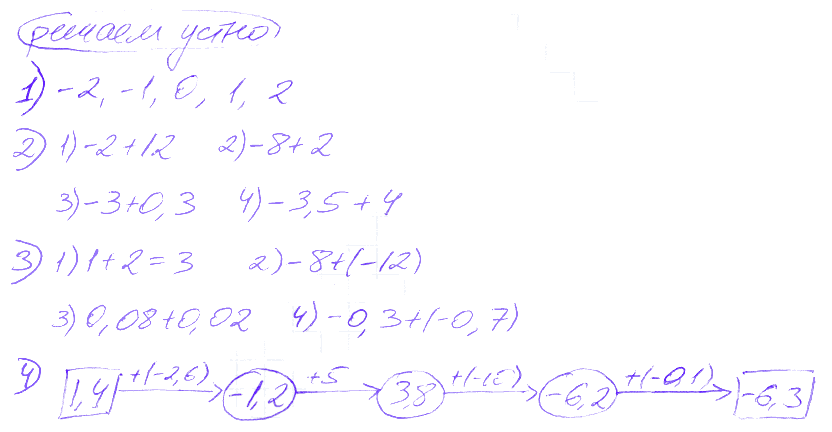 решаем устно
1) -2, -1, 0, 1, 2
2) 1) -2+12 2) -8+2
3) -3+0,3 4) -3,5+4
3) 1) 1+2=3 2) -8+(-12)
3) 0,08+0,02 4) -0,3+(-0,7)
4) 1,4 +(-2,6) -1,2 +5 3,8 -6,2 +(-0,1) -6,3